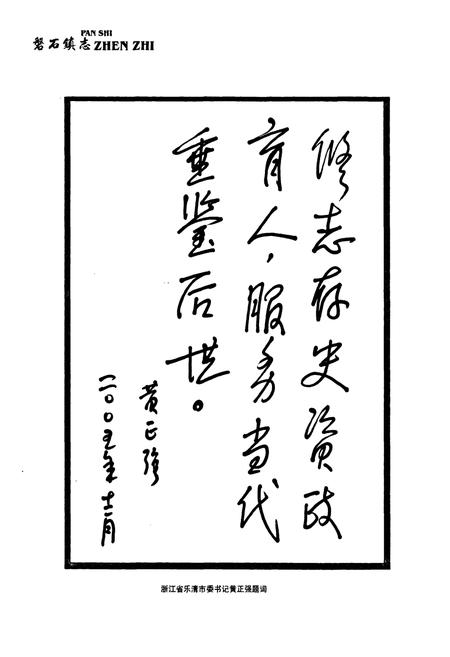 PAN SHI
磐石镇志 ZHEN ZHI
修志存史资政
育人，服务当代
垂鉴后世。
黄正强
二〇〇五年十二月
浙江省乐清市委书记黄正强题词